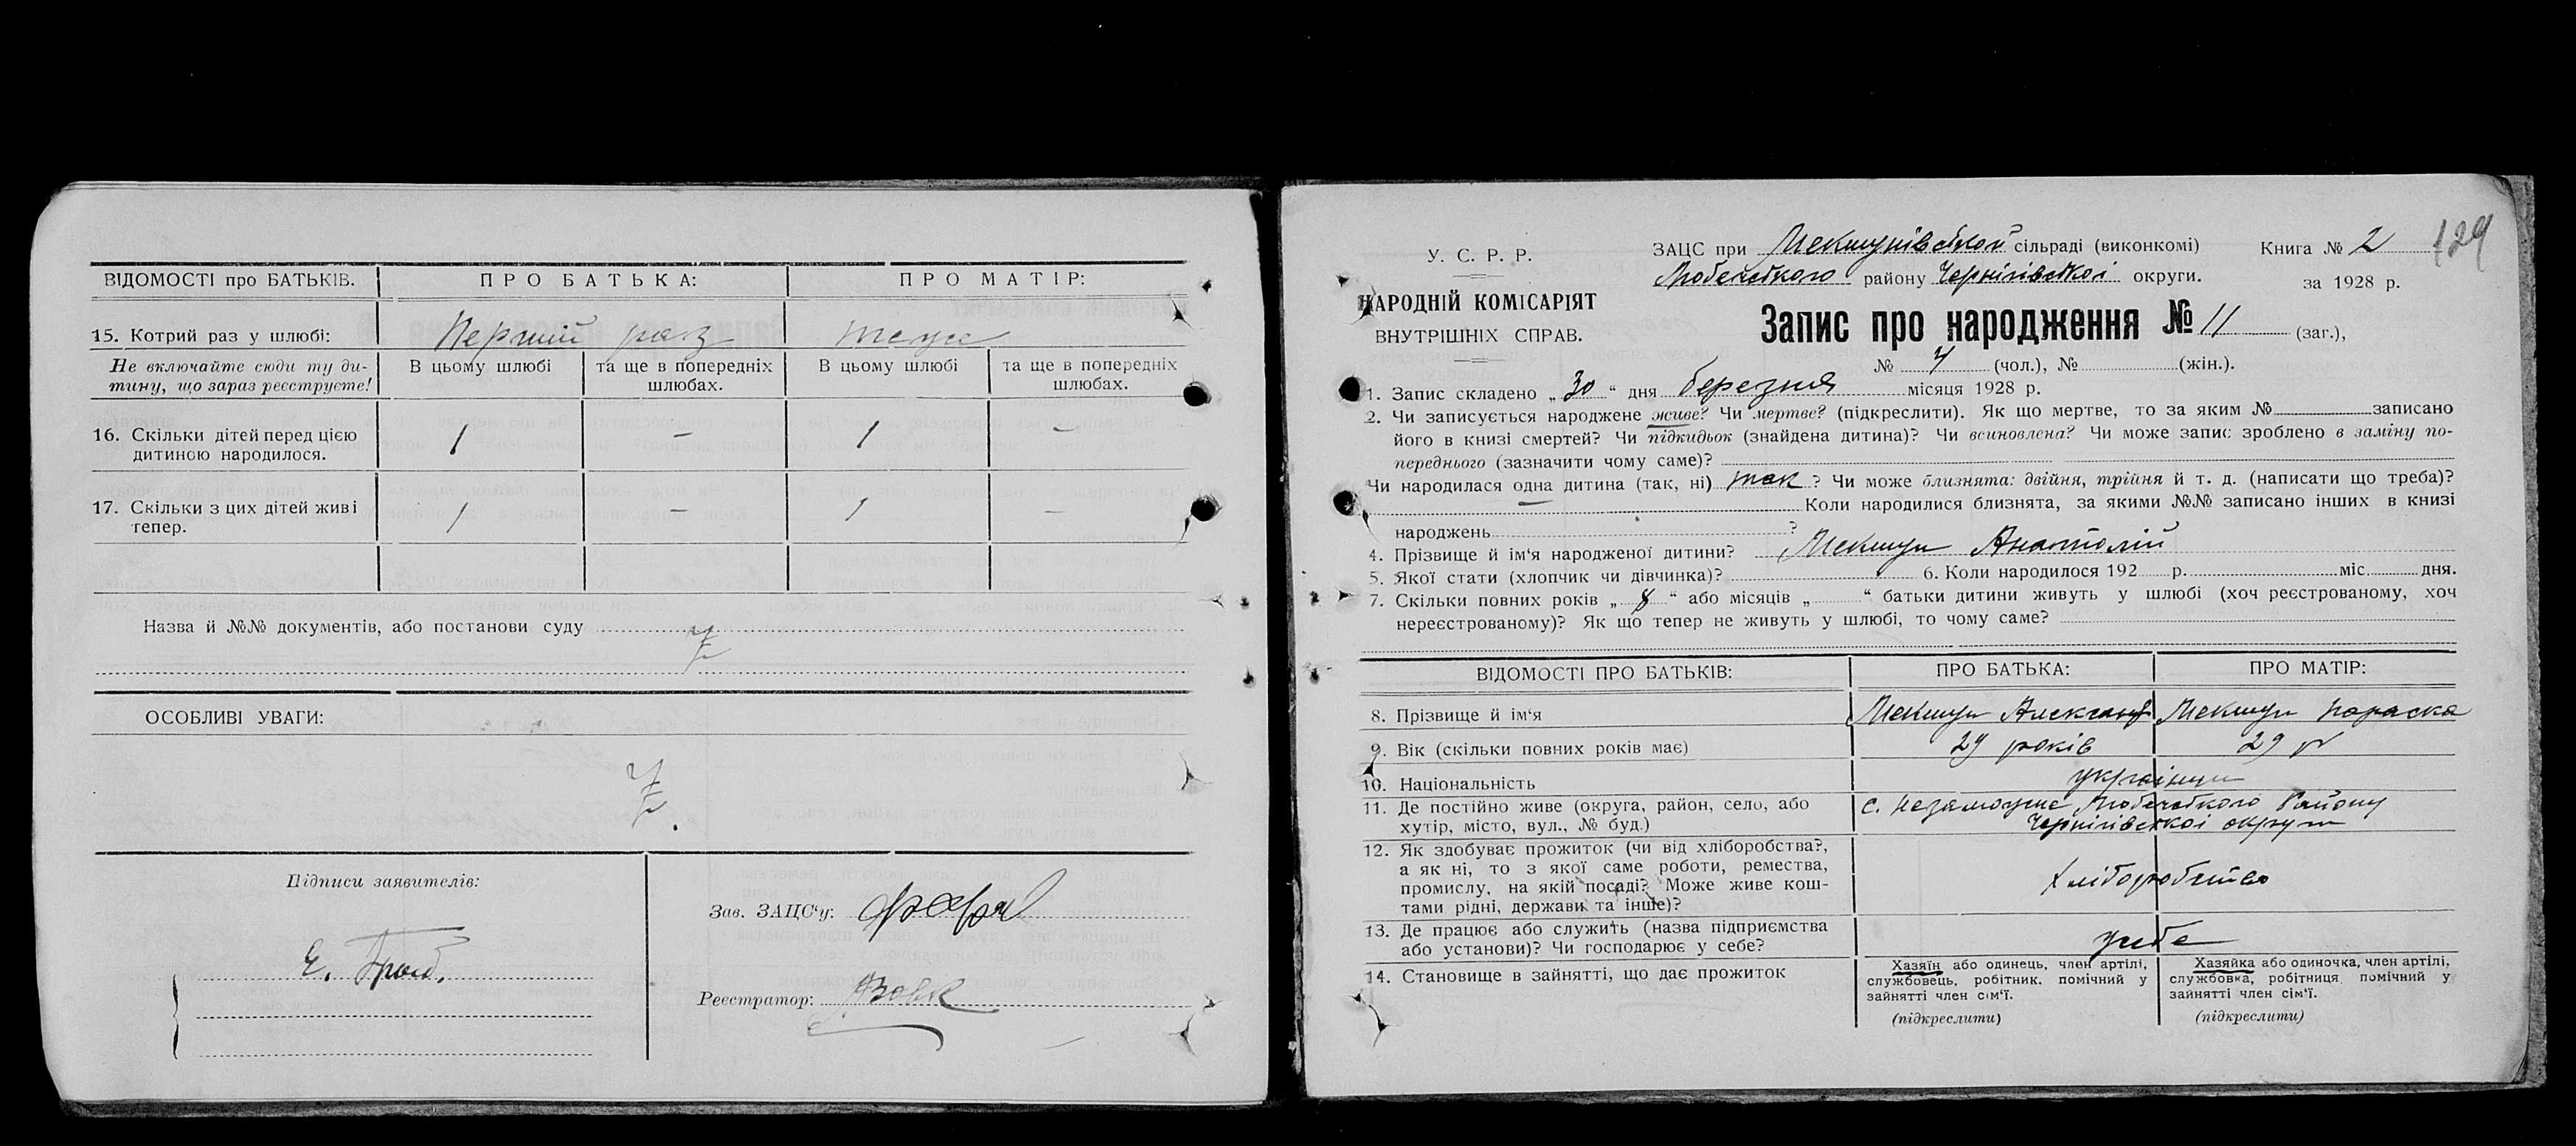 ВІДОМОСТІ про БАТЬКІВ. ПРО БАТЬКА: ПРО МАТІР:
15. Котрий раз у шлюбі: Перший раз
Не включайте сюди ту ди-
тину, що зараз реєструєте!
В цьому шлюбі
та ще в попередніх
шлюбах.
В цьому шлюбі
та ще в попередніх
шлюбах.
16. Скільки дітей перед цією
дитиною народилося.
1 – 1 –
17. Скільки з цих дітей живі
тепер.
1 – 1 –
Назва й №№ документів, або постанови суду
ОСОБЛИВІ УВАГИ:
Підписи заявителів:
Зав. ЗАЦС‘у:
Е.
Реєстратор:
129
У. С. Р. Р.
НАРОДНІЙ КОМІСАРІЯТ
ВНУТРІШНІХ СПРАВ.
ЗАЦС при Мекшунівській сільраді (виконкомі) Книга № 2
Любецького району Чернігівської округи. за 1928 р.
Запис про народження № 11 (заг.),
№ (чол.), № (жін.).
1. Запис складено „ 30 “ дня березня місяця 1928 р.
2. Чи записується народжене живе? Чи мертве? (підкреслити). Як що мертве, то за яким № записано
його в книзі смертей? Чи підкидьок (знайдена дитина)? Чи всиновлена? Чи може запис зроблено в заміну по-
переднього (зазначити чому саме)?
Чи народилася одна дитина (так, ні) так ? Чи може близнята: двійня, трійня й т. д. (написати що треба)?
– Коли народилися близнята, за якими №№ записано інших в книзі
народжень ?
4. Прізвище й ім‘я народженої дитини? Мекшун Анатолій
5. Якої стати (хлопчик чи дівчинка)? 6. Коли народилось 192 р. міс. дня.
7. Скільки повних років „ 8 “ або місяців „ “ батьки дитини живуть у шлюбі (хоч реєстрованому, хоч
нереєстрованому)? Як що тепер не живуть у шлюбі, то чому саме?
ВІДОМОСТІ ПРО БАТЬКІВ: ПРО БАТЬКА: ПРО МАТІР:
8. Прізвище й ім‘я Мекшун Мекшун Параска
9. Вік (скільки повних років має) 29 років 29 р
10. Національність українци
11. Де постійно живе (округа, район, село, або
хутір, місто, вул., № буд.)
с. Незаможне Любецького Району
Чернігівської округи
12. Як здобуває прожиток (чи від хліборобства?,
а як ні, то з якої саме роботи, ремества,
промислу, на якій посаді? Може живе кош-
тами рідні, держави та інше)?
Хліборобство
13. Де працює або служить (назва підприємства
або установи)? Чи господарює у себе?
у себе
14. Становище в зайнятті, що дає прожиток
Хазяїн або одинець, член артілі,
службовець, робітник, помічний у
зайнятті член сім‘ї.
(підкреслити)
Хазяйка або одиночка, член артілі,
службовка, робітниця помічний у
зайнятті член сім‘ї.
(підкреслити)